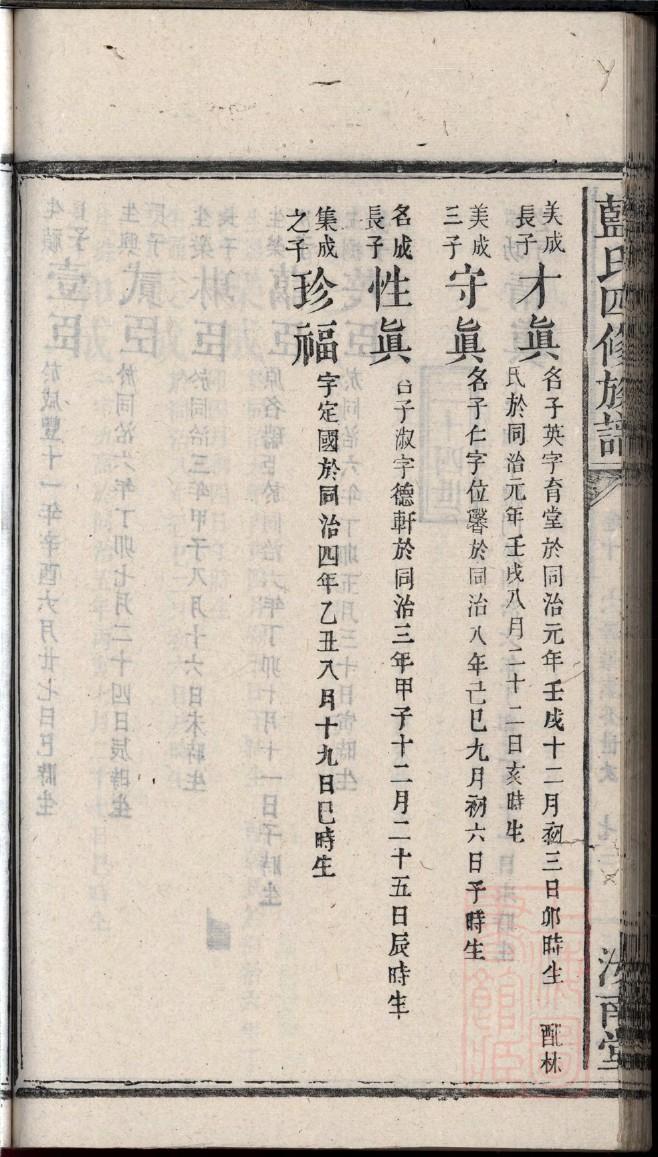 藍氏四修族譜
汝南堂
美成長子
才眞
名子英字育堂於同治元年壬戌十二月初三日卯時生 配林
氏於同治元年壬戌八月二十二日亥時生
美成三子
守眞
名子仁字位馨於同治八年己巳九月初六日子時生
名成長子
性眞
名子淑字德軒於同治三年甲子十二月二十五日辰時生
集成之子
珍福
字定國於同治四年乙丑八月十九日巳時生